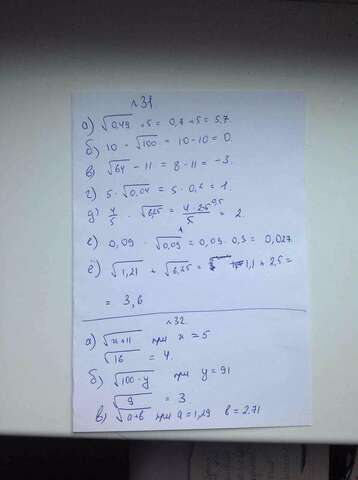 №31
а) √0,49 + 5 = 0,7 + 5 = 5,7
б) 10 - √100 = 10 - 10 = 0.
в) √64 - 11 = 8 - 11 = -3.
г) 5 · √0,04 = 5 · 0,2 = 1.
д) 4/5 · √6,25 = 4 · 2,5/5 = 2.
е) 0,09 · √0,09 = 0,09 · 0,3 = 0,027
ё) √1,21 + √6,25 = 1,1 + 2,5 =
= 3,6
№32.
а) √x+11 при x = 5
√16 = 4
б) √100-y при y = 91
√9 = 3
в) √a+b при a = 1,29 b = 2.71